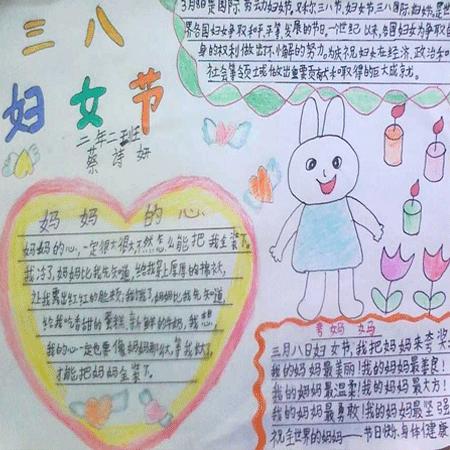 三八
妇女节
二年二班
蔡诗妍
3月8日是国际劳动妇女节,又称三八节,妇女节三八国际妇女节,是世
界各国妇女争取和平平等,发展的节日。一世纪以来,各国妇女为争取自
身的权利做出不懈的努力。为庆祝妇女在经济、政治和
社会等领域做出重要贡献和取得的巨大成就。
妈妈的心
妈妈的心,一定很大很大不然怎么能把我全装下。
我冷了,妈妈比我先知道,给我穿上厚厚的棉衣,
让我露出红红的脸颊,我饿了,妈妈比我先知道,
给我吃香甜的蛋糕,新鲜的牛奶,我想,
我的心一定也像妈妈那大,等我大了,
才能把妈妈全装下。
夸妈妈
三月八日妇女节,我把妈妈来夸奖
我的妈妈最美丽!我的妈妈最善良!
我的妈妈最温柔!我的妈妈最大方!
我的妈妈最勇敢!我的妈妈最坚强
祝全世界的妈妈——节日快乐,身体健康